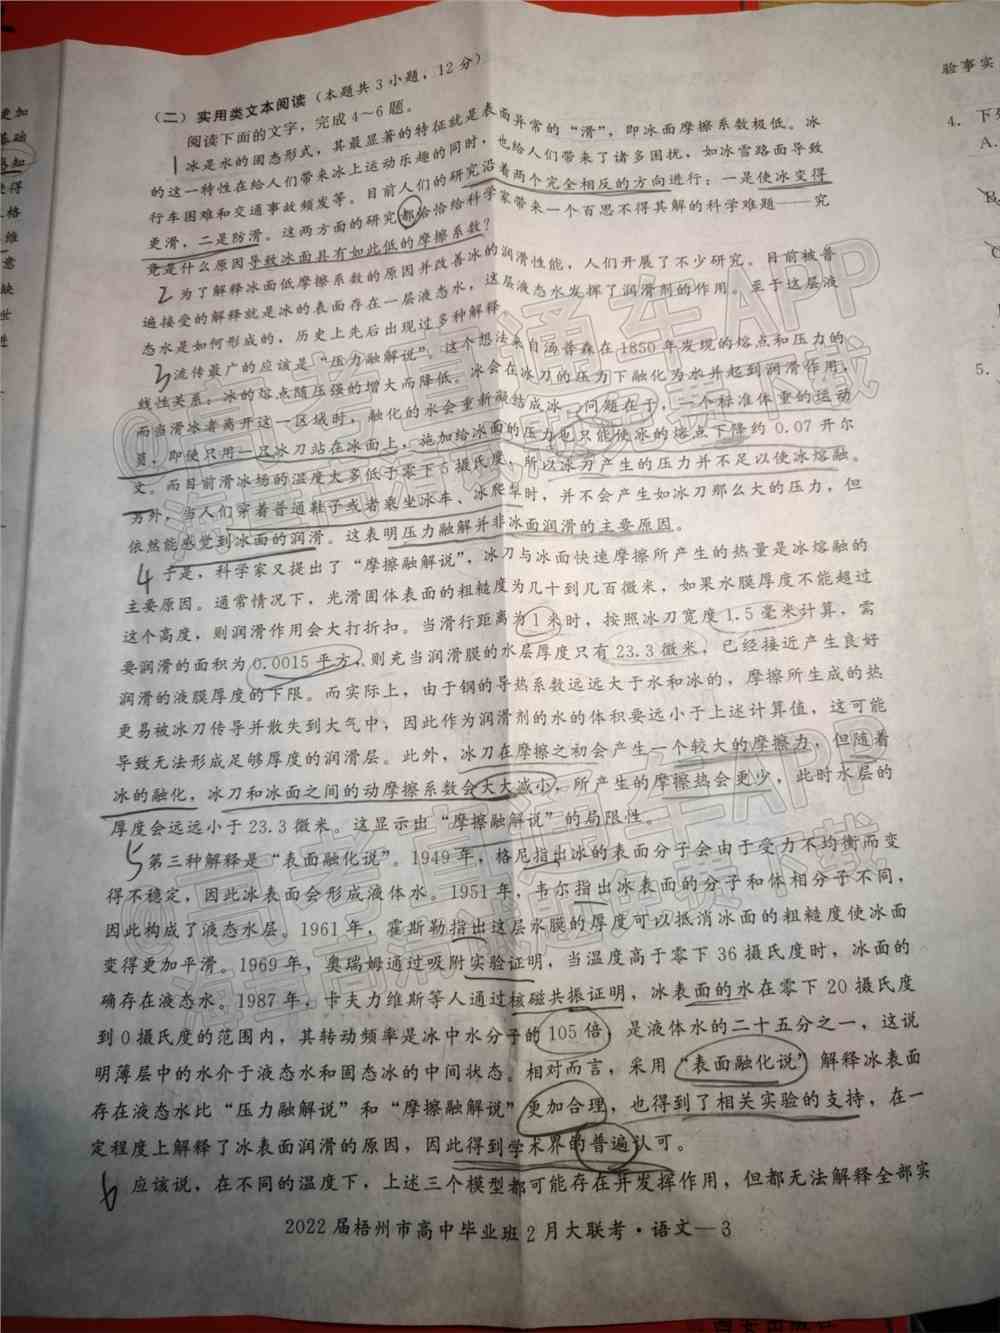 （二）实用类文本阅读（本题共3小题，12分）
阅读下面的文字，完成4～6题。
1冰是水的固态形式，其最显著的特征就是表面异常的“滑”，即冰面摩擦系数极低。冰
的这一特性在给人们带来冰上运动乐趣的同时，也给人们带来了诸多困扰，如冰雪路面导致
行车困难和交通事故频发等。目前人们的研究沿着两个完全相反的方向进行：一是使冰变得
更滑，二是防滑。这两方面的研究都恰恰给科学家带来一个百思不得其解的科学难题——究
竟是什么原因导致冰面具有如此低的摩擦系数？
2为了解释冰面低摩擦系数的原因并改善冰的润滑性能，人们开展了不少研究。目前被普
遍接受的解释就是冰的表面存在一层液态水，这层液态水发挥了润滑剂的作用。至于这层液
态水是如何形成的，历史上先后出现过多种解释。
3流传最广的应该是“压力融解说”。这个想法来自汤普森在1850年发现的熔点和压力的
线性关系：冰的熔点随压强的增大而降低。冰会在冰刀的压力下融化为水并起到润滑作用，
而当滑冰者离开这一区域时，融化的水会重新凝结成冰。问题在于，一个标准体重的运动
员，即使只用一只冰刀站在冰面上，施加给冰面的压力也只能使冰的熔点下降约0.07开尔
文。而目前滑冰场的温度大多低于零下5摄氏度，所以冰刀产生的压力并不足以使冰熔融。
另外，当人们穿着普通鞋子或者乘坐冰车、冰爬犁时，并不会产生如冰刀那么大的压力，但
依然能感觉到冰面的润滑。这表明压力融解并非冰面润滑的主要原因。
4于是，科学家又提出了“摩擦融解说”，冰刀与冰面快速摩擦所产生的热量是冰熔融的
主要原因。通常情况下，光滑固体表面的粗糙度为几十到几百微米，如果水膜厚度不能超过
这个高度，则润滑作用会大打折扣。当滑行距离为1米时，按照冰刀宽度1.5毫米计算，需
要润滑的面积为0.0015平方，则充当润滑膜的水层厚度只有23.3微米，已经接近产生良好
润滑的液膜厚度的下限。而实际上，由于钢的导热系数远远大于水和冰的，摩擦所生成的热
更易被冰刀传导并散失到大气中，因此作为润滑剂的水的体积要远小于上述计算值，这可能
导致无法形成足够厚度的润滑层。此外，冰刀在摩擦之初会产生一个较大的摩擦力，但随着
冰的融化，冰刀和冰面之间的动摩擦系数会大大减小，所产生的摩擦热会更少，此时水层的
厚度会远远小于23.3微米。这显示出“摩擦融解说”的局限性。
5第三种解释是“表面融化说”。1949年，格尼指出冰的表面分子会由于受力不均衡而变
得不稳定，因此冰表面会形成液体水。1951年，韦尔指出冰表面的分子和体相分子不同，
因此构成了液态水层。1961年，霍斯勒指出这层水膜的厚度可以抵消冰面的粗糙度使冰面
变得更加平滑。1969年，奥瑞姆通过吸附实验证明，当温度高于零下36摄氏度时，冰面的
确存在液态水。1987年，卡夫力维斯等人通过核磁共振证明，冰表面的水在零下20摄氏度
到0摄氏度的范围内，其转动频率是冰中水分子的105倍，是液体水的二十五分之一，这说
明薄层中的水介于液态水和固态冰的中间状态。相对而言，采用“表面融化说”解释冰表面
存在液态水比“压力融解说”和“摩擦融解说”更加合理，也得到了相关实验的支持，在一
定程度上解释了冰表面润滑的原因，因此得到学术界的普遍认可。
6应该说，在不同的温度下，上述三个模型都可能存在并发挥作用，但都无法解释全部实
2022届梧州市高中毕业班2月大联考·语文—3
更加
基础
感知
使得
格
维
意
缺
世
进
验事实
4. 下
A.
B.
C.
5.
@高考直通车APP
海量高清试题免费下载
@高考直通车APP
海量高清试题免费下载